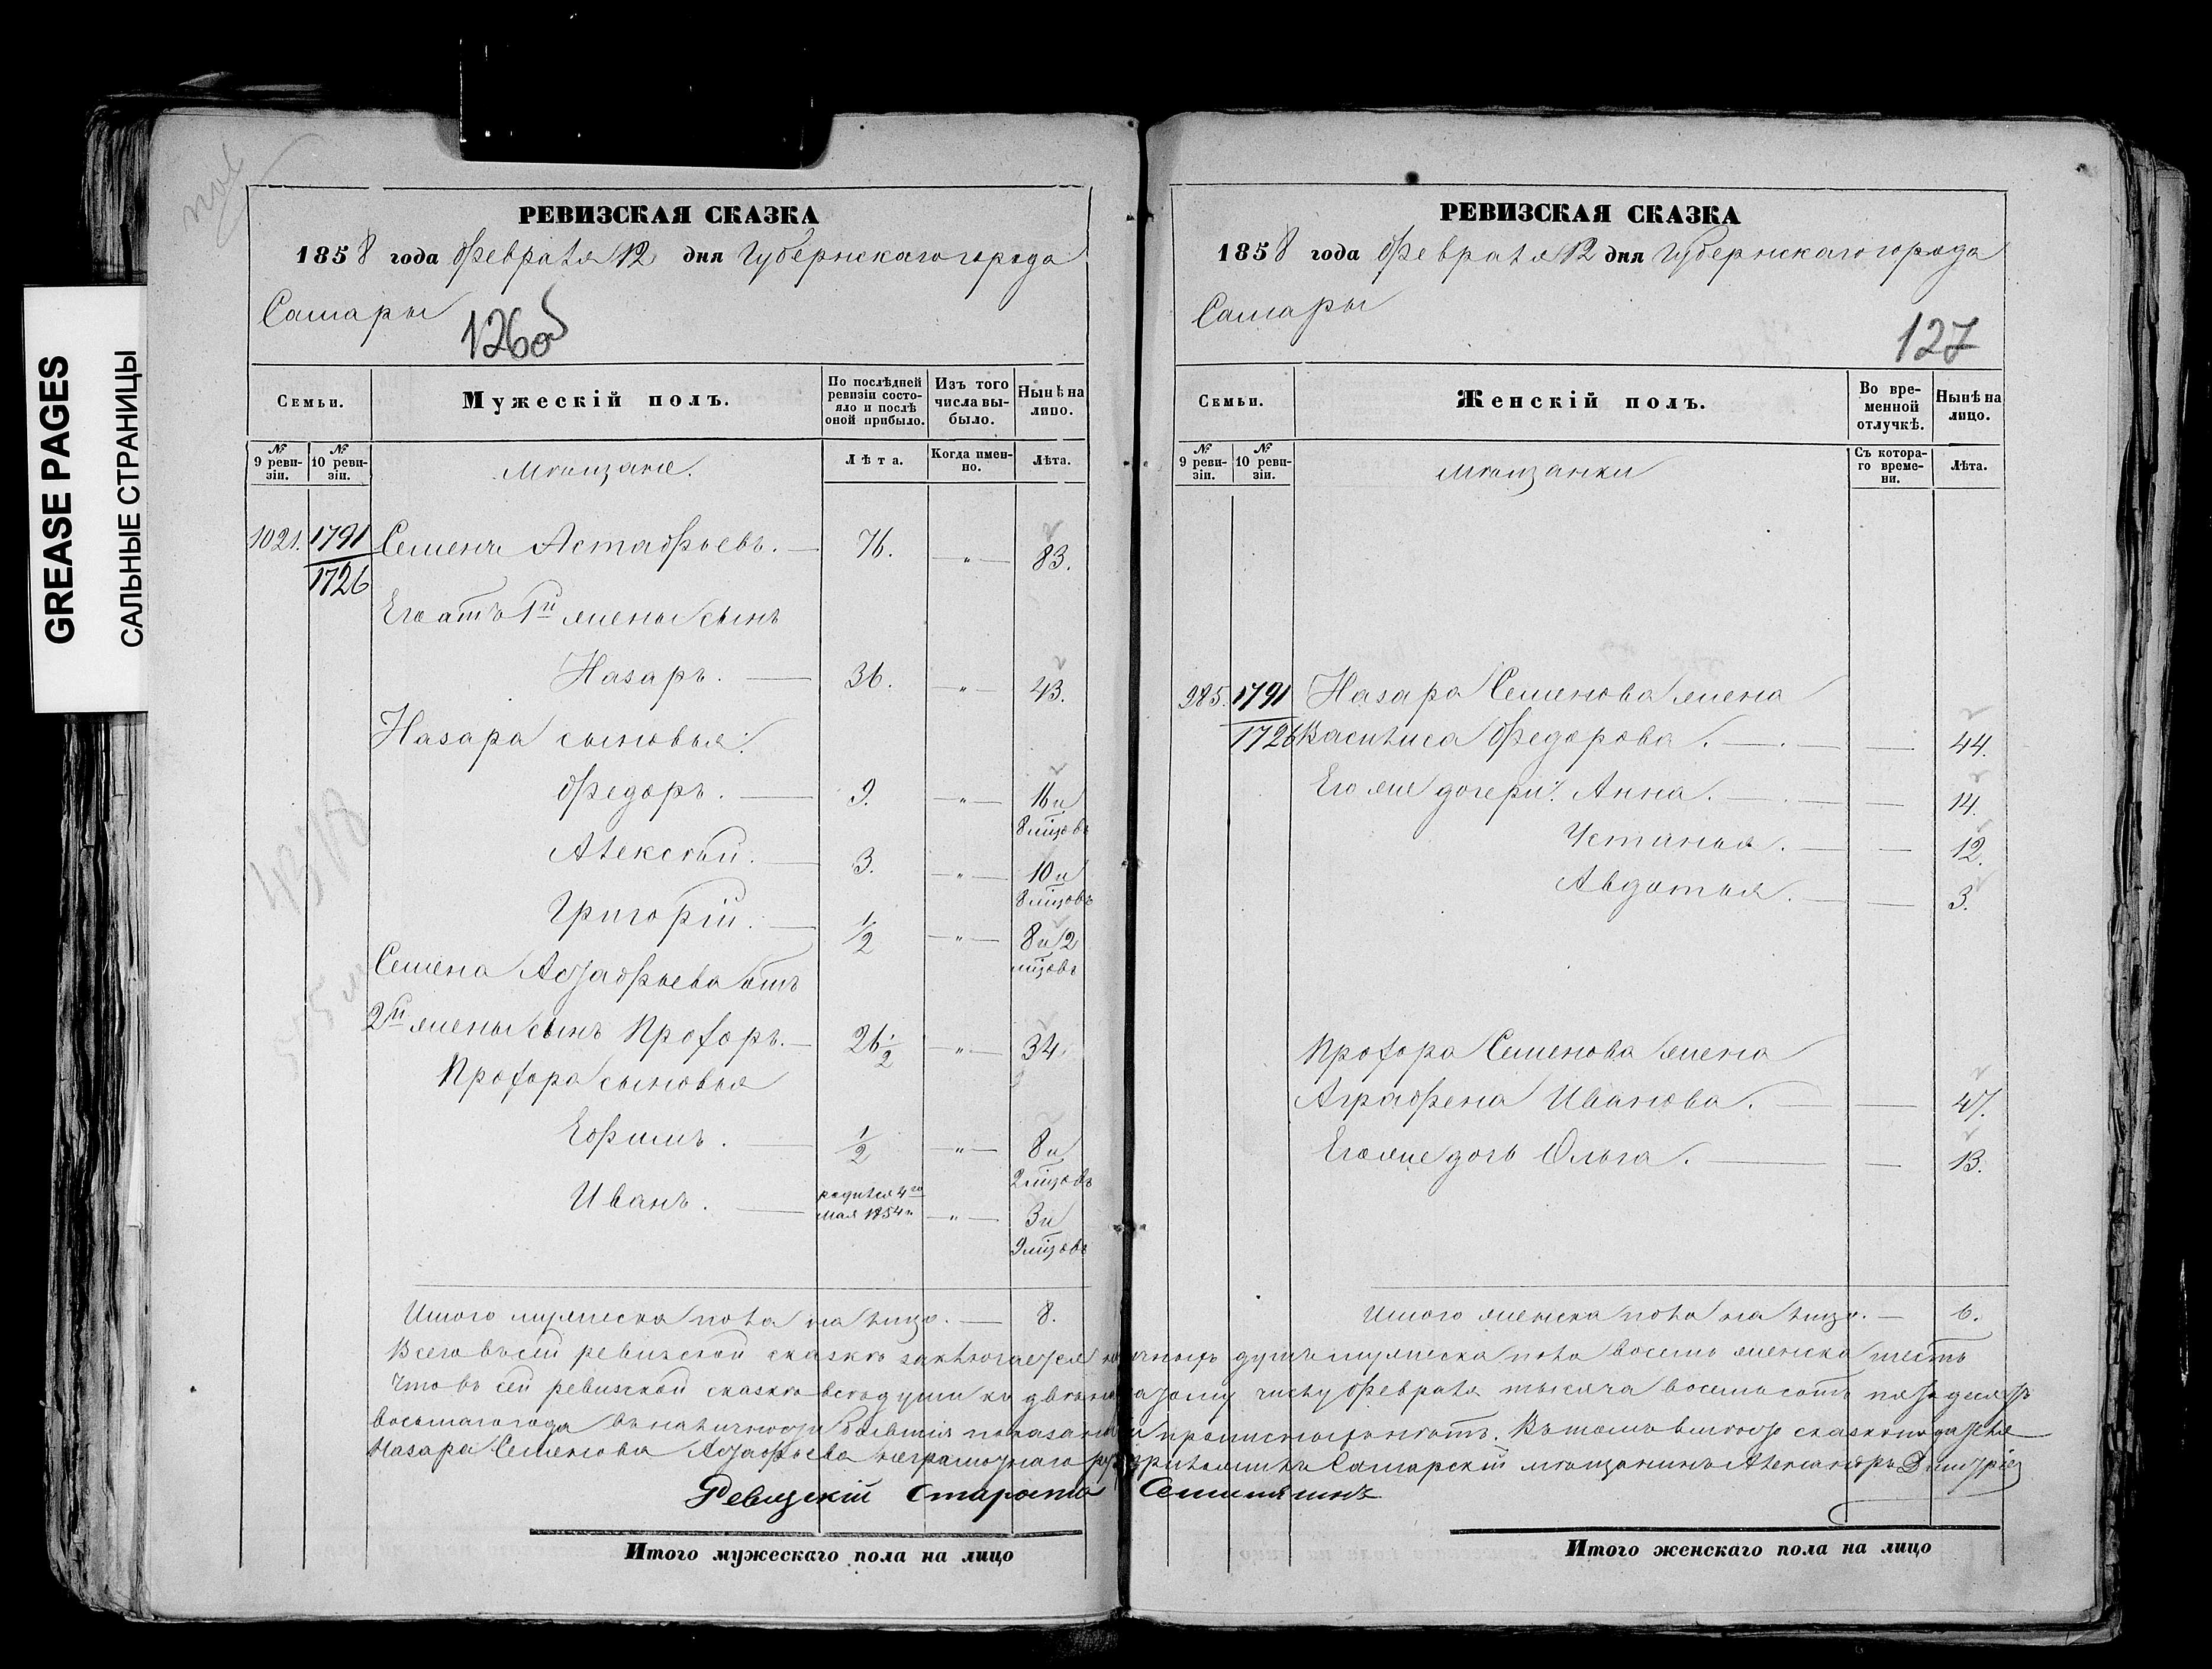 GREASE PAGES
САЛЬНЫЕ СТРАНИЦЫ
РЕВИЗСКАЯ СКАЗКА
1858 года Февраля 12 дня Губернскаго города
Самары
126об
Семьи.
Мужескій полъ.
По послѣдней ревизіи состояло и послѣ оной прибыло.
Изъ того числа выбыло.
Нынѣ на лицо.
№ 9 ревизіи.
№ 10 ревизіи.
Мѣщане.
Лѣта.
Когда именно.
Лѣта.
1021. 1791 Семенъ Астафьевъ. — 76. — " — 83.
1726
Его отъ 1й жены сынъ
Назаръ. — 36. — " — 43.
Назара сыновья:
Федоръ. — 9. — " — 16 и
8 мцовъ
Алексѣй. — 3. — " — 10 и
8 мцовъ
Григорій. — 1/2 — " — 8 и 2
мцовъ
Семена Астафьева отъ
2й жены сынъ Прохоръ. — 26 1/2 — " — 34.
Прохора сыновья
Ефимъ. — 1/2 — " — 8 и
2 мцовъ
Иванъ. — родился 4го
мая 1854 — " — 3 и
9 мцовъ
Итого мужеска пола на лицо. — 8.
РЕВИЗСКАЯ СКАЗКА
1858 года Февраля 12 дня Губернскаго города
Самары
127
Семьи.
Женскій полъ.
Во временной отлучкѣ.
Нынѣ на лицо.
№ 9 ревизіи.
№ 10 ревизіи.
Мѣщанки
Съ котораго времени.
Лѣта.
985. 1791 Назара Семенова жена
1726 Василиса Федорова. — — 44.
Его же дочери: Анна. — — 14.
Устинья. — — 12.
Авдотья. — — 3.
Прохора Семенова жена
Аграфена Иванова. — — 47.
Его же дочь Ольга. — — 13.
Итого женска пола на лицо. — 6.
Всего въ сей ревизской сказкѣ заключается наличныхъ душъ мужеска пола восемь женска шесть
Что въ сей ревизской сказкѣ всѣ души къ двѣнадцатому числу Февраля тысяча восемьсотъ пятьдесятъ
восьмаго года въ наличности бывшія показаны и прописныхъ нѣтъ. Въ томъ вмѣсто сказкоподателя
Назара Семенова Астафьева неграмотнаго Самарскій мѣщанинъ Александръ
Ревизскій Староста
Итого мужескаго пола на лицо
Итого женскаго пола на лицо